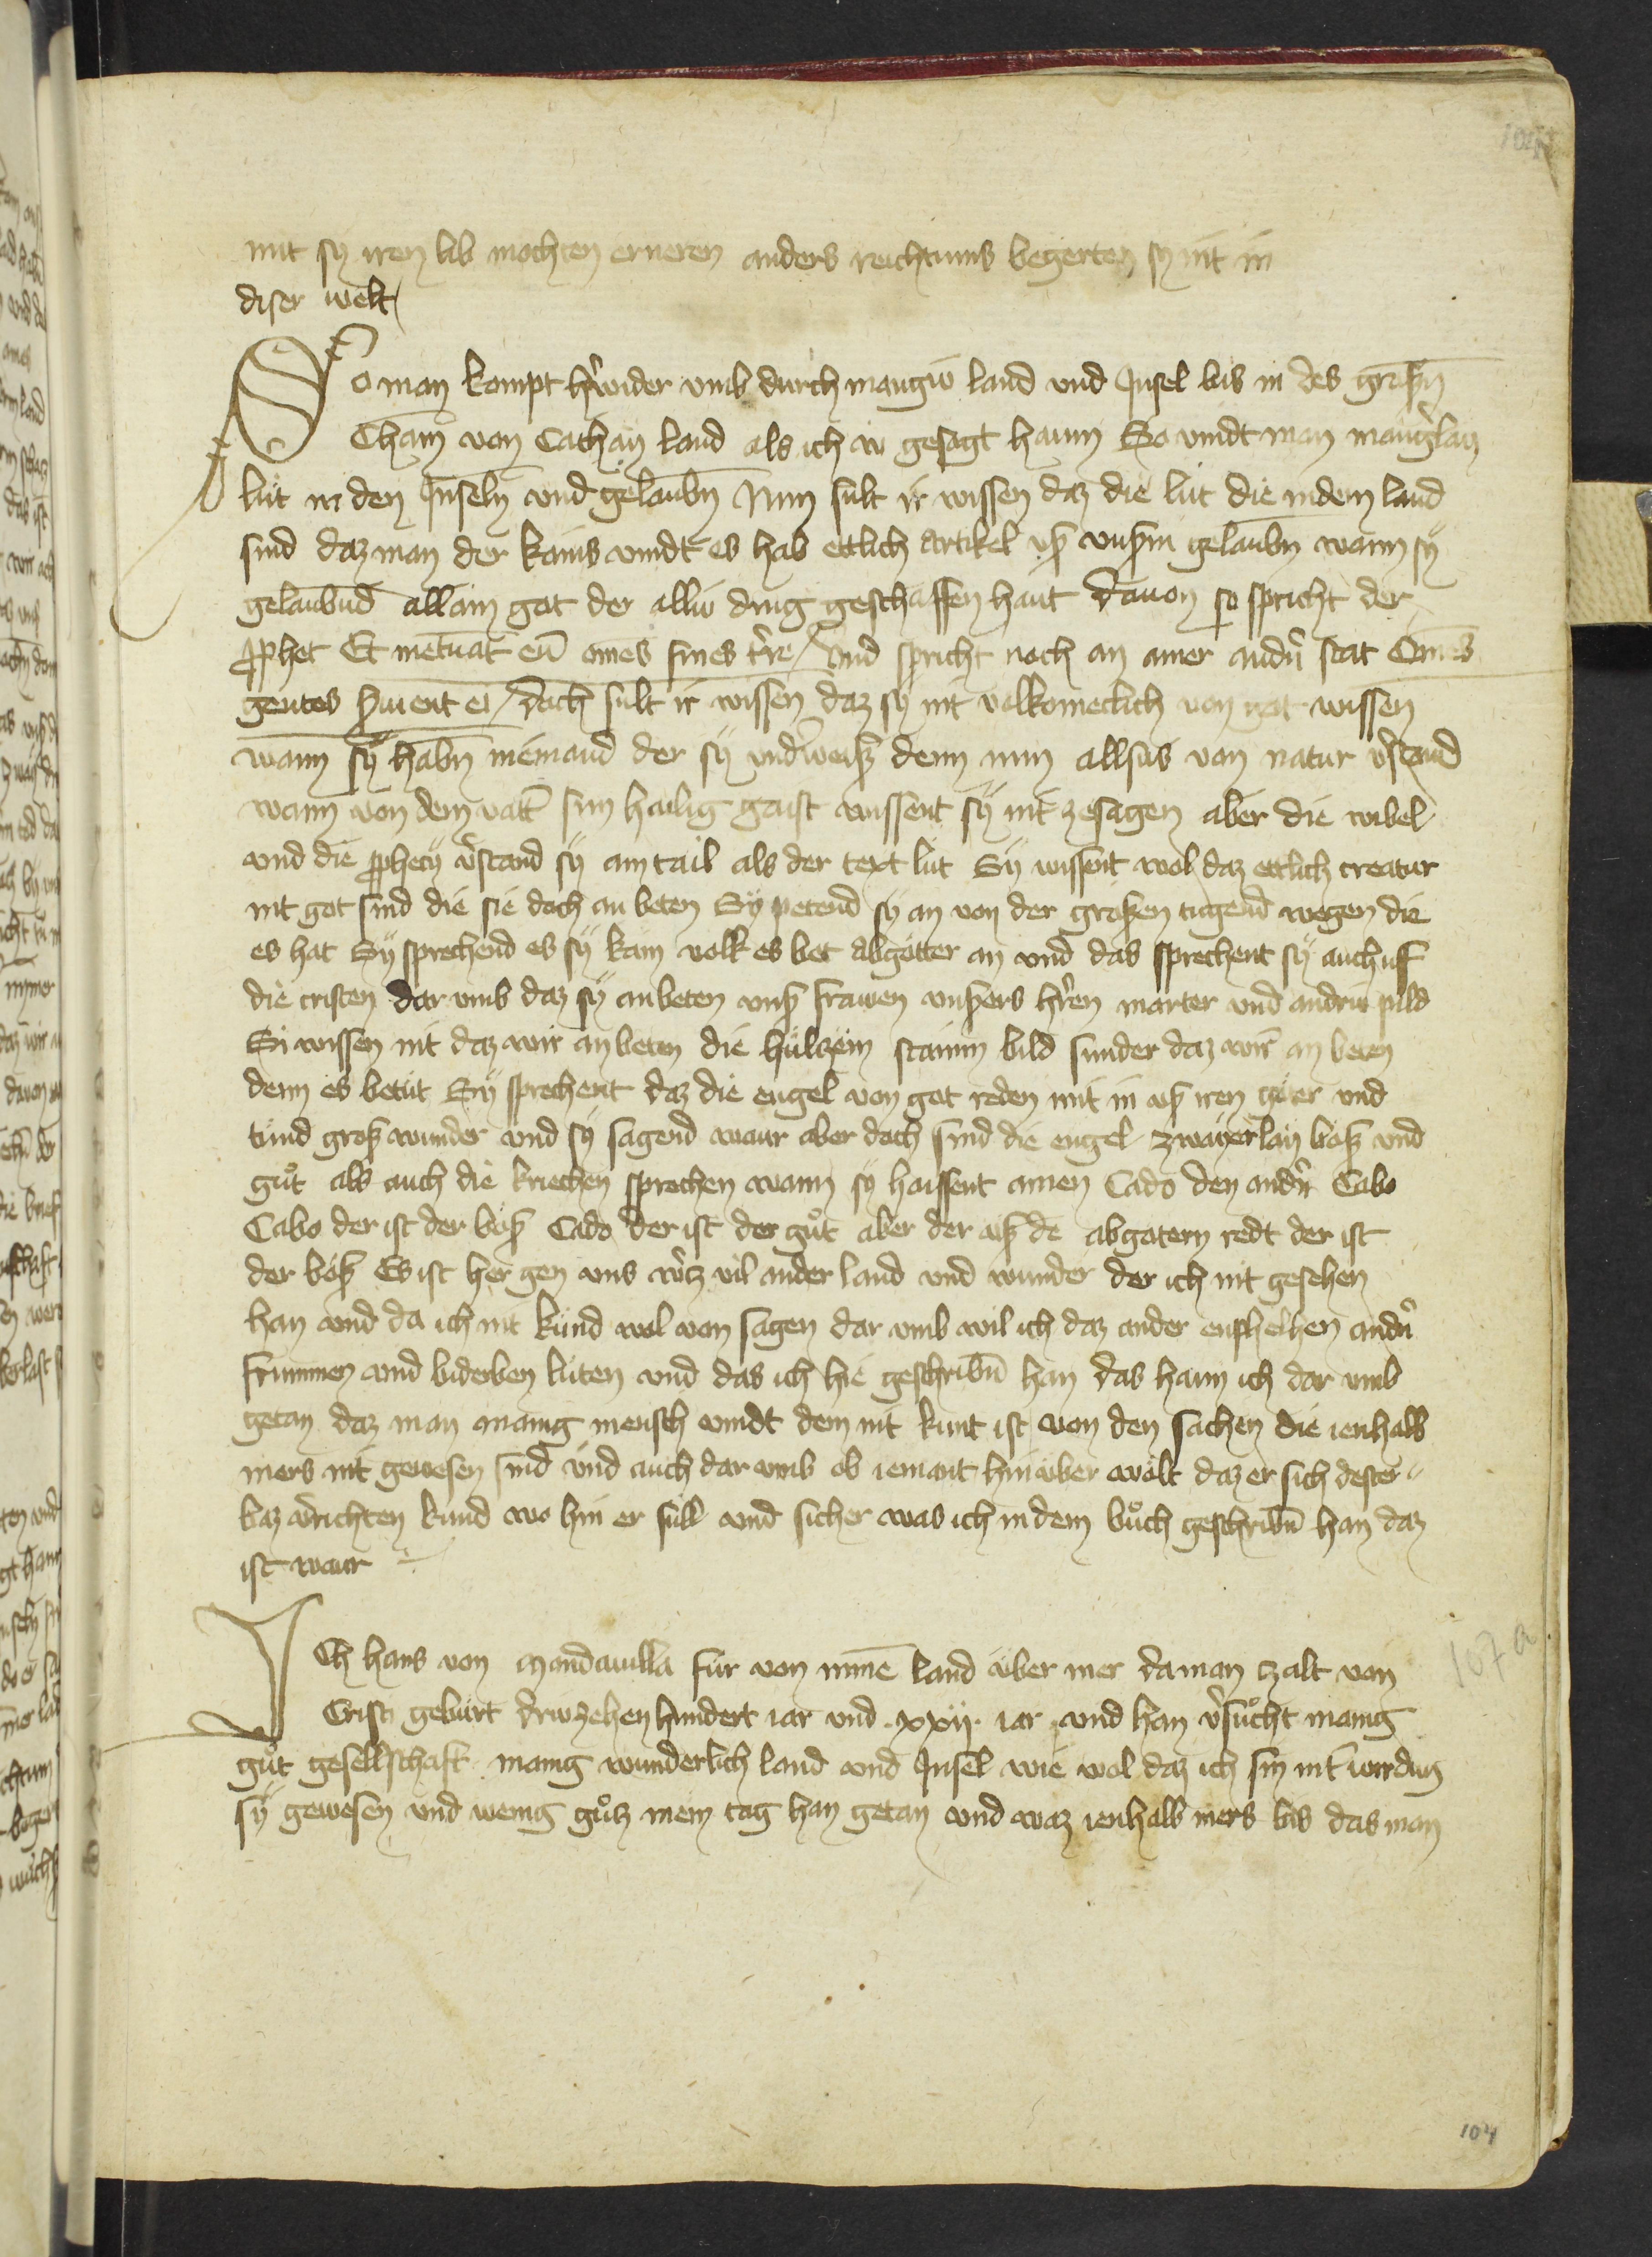 104
mit sy iren lib mochten erneren anders reichtums begerten sy nit in
diser welt
So man kompt hrwider vmb durch mangiu land vnd Jnsel bis in des grossen
Cham von Cathay land als ich iv gesagt hann So vindt man mangrlay
lüt in den Jnseln vnd gelaubn Nun sult ir wissen daz die lüt die in dem land
sind daz man der kains vindt es hab ettlich artikel vß vnßm gelaubn wann sy
gelaubnd allain got der alliv ding geschaffen haut Dauon so spricht der
prophet Et metuāt eū omēs fines trre / Vnd spricht noch an ainer andr stat Omēs
gentes suient ei / Doch sult ir wissen daz sy nit volkomeclich von got wissen
wann sy habn niemand der sy vndrweiß denn nun allsus von natur vrstand
wann von dem vatr sun hailig gaist wissent sy nit zesagen aber die wibel
vnd die prophecy vrstand sy ain tail als der text lut Sy wissent wol daz ettlich creatur
nit got sind die sie doch an beten Sy petend sy an von der großen tugend wegen die
es hat Sy sprechend es sy kain volk es bet abgötter an vnd das sprechent sy auch uf
die cristen dar vmb daz sy an beten vnß frawen vnßers hren marter vnd andriu pild
Si wissen nit daz wir an beten die hülzein stainin bild sunder daz wir an beten
denn es betüt Sy sprechent daz die engel von got reden mit in vß iren götter vnd
tünd groß wunder vnd sy sagend waur aber doch sind die engel zwayerlay böß vnd
gut als auch die kriechen sprechen wann sy haissent ainen Cado den andr Cabo
Cabo der ist der böß Cado der ist der gut aber der vß de abgotern redt der ist
der böß Es ist her gen vns wrtz vil ander land vnd wunder der ich nit gesehen
han vnd da ich nit kund wol von sagen dar vmb wil ich daz ander enphelhen andr
frummen vnd biderben lüten vnd das ich hie geschribn han das hann ich dar vmb
getan daz man manig mensch vindt dem nit kunt ist von den sachen die ienhalb
mers nit gewesen sind vnd auch dar vmb ob iemant hin über wölt daz er sich dester
baz vrichten kund wo hin er süll vnd sicher was ich in dem buch geschribn han daz
ist waur
107a
Ich hans von Mandauilla für von mine land über mer da man zalt von
Cristi geburt driuzehen hundert iar vnd .xxij. iar vnd han vrsucht manig
gut gesellschaft manig wunderlich land vnd Jnsel wie wol daz ich sin nit wirdig
sy gewesen vnd wenig gutz mein tag han getan vnd waz ienhalb mers bis das man
104